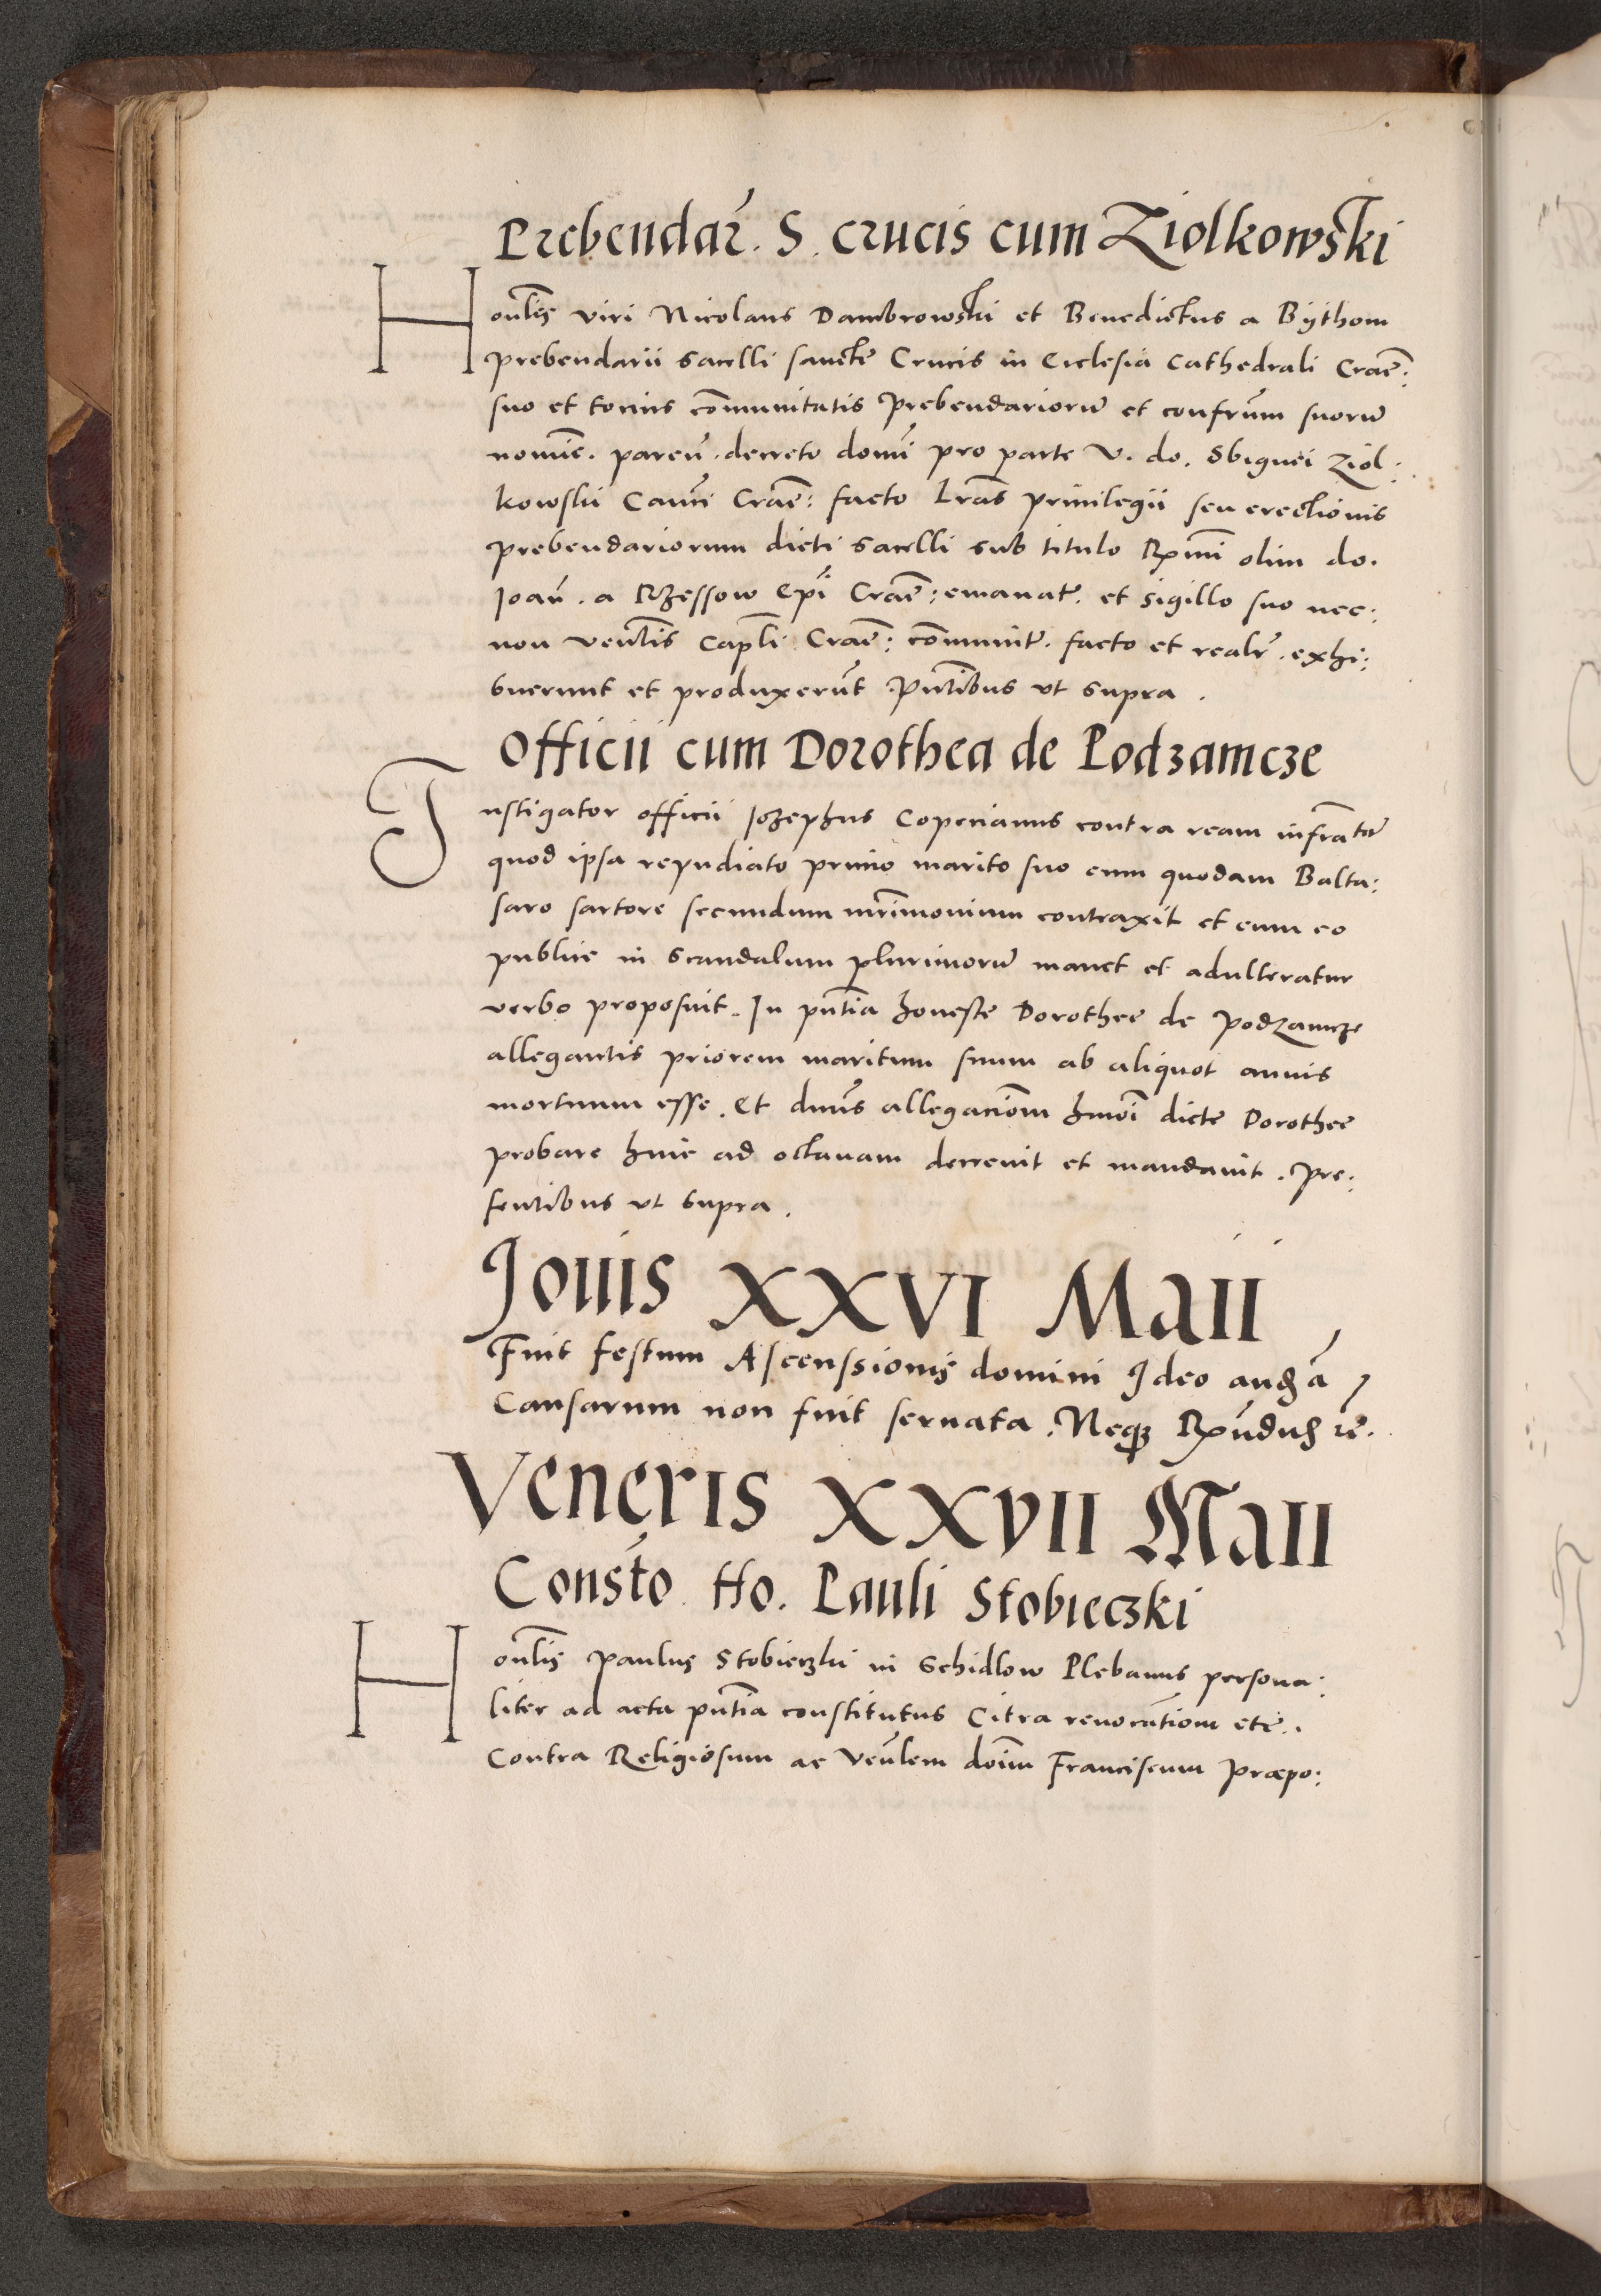 Prebendar̃. S. crucis cum Ziolkowski
Honĺes viri Nicolaus Dambrowski et Benedictus a Bythom
prebendarii sacelli sancte Crucis in Ecclesia Cathedrali Crac̃:
suo et totius cõmunitatis prebendariorũ et confrũm suorũ
nomĩe. pareñ. decreto domĩ pro parte V. do. Sbignei Ziol:
kowski Canĩci Crac̃: facto Lr̃as privilegii seu erectionis
prebendariorum dicti sacelli sub titulo Rx̃mi olim do.
Joañ. a Rzessow Ep̃i Crac̃: emanat̃. et sigillo suo nec:
non veñlis Capl̃i Crac̃: cõmunit̃. facto et realr̃. exhi:
buerunt et produxerũt Pñtibus vt supra.
Officii cum Dorothea de Podzamcze
Instigator officii Jozephus Copecianus contra ream infrãtã
quod ipsa repudiato primo marito suo cum quodam Balta:
saro sartore secundum mr̃imonium contraxit et cum eo
publice in scandalum plurimorũ manet et adulteratur
verbo proposuit. In pñtia honeste Dorothee de Podzamcze
allegantis priorem maritum suum ab aliquot annis
mortuum esse. Et dnũs allegaciõm hmõi dicte Dorothee
probare hinc ad octauam decreuit et mandauit. Pre:
sentibus vt supra.
Jouis XXVI Maii
Fuit festum Ascenssionis domini Ideo audã
Causarum non fuit seruata. Neqȝ Rx̃ndus re.
Veneris XXVII Maii
Consto Ho. Pauli Stobieczki
Honĺis Paulus Stobieczki in Schidlow Plebanus persona:
liter ad acta pñtia constitutus Citra reuocãtiom etc̃.
Contra Religiosum ac Veñlem doim̃ Franciscum Præpo: